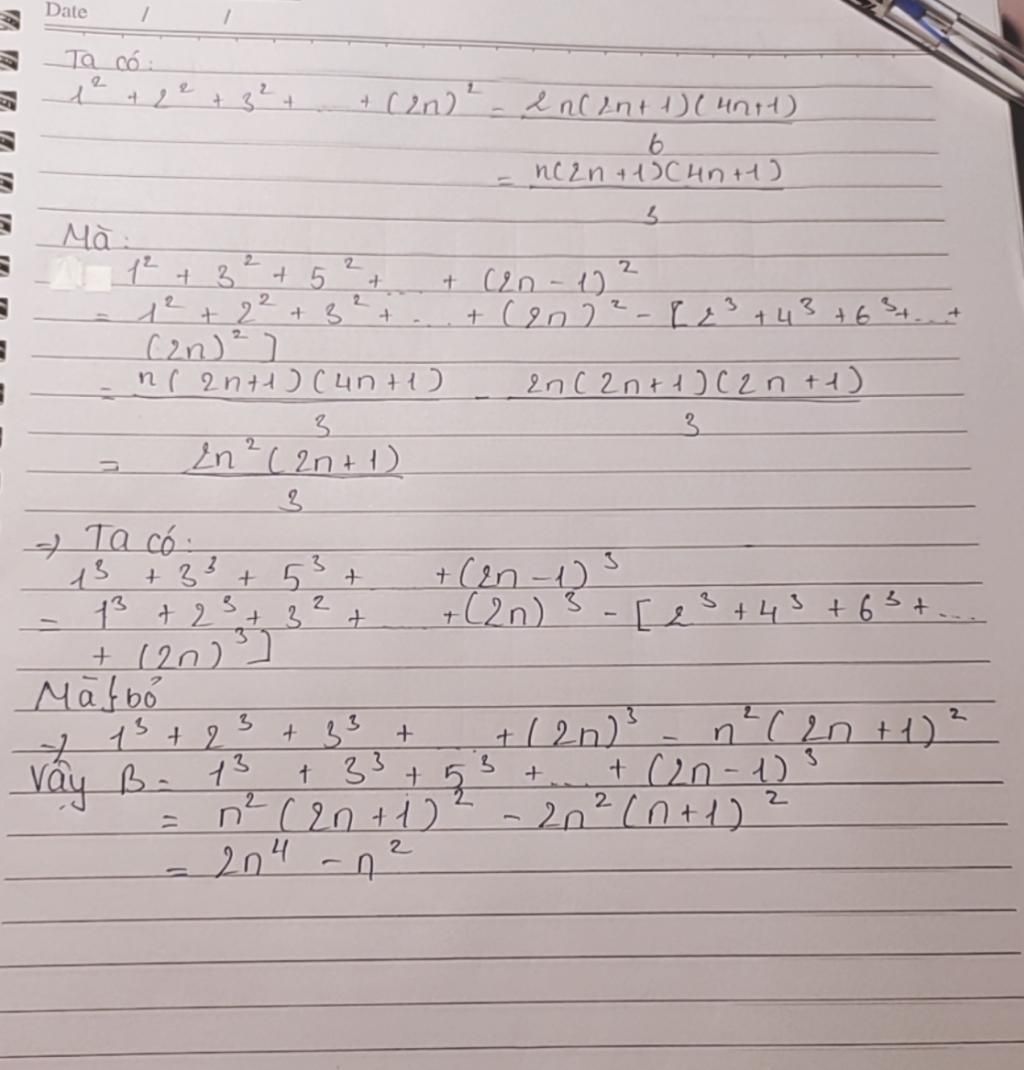 Date / /
Ta có:
1² + 2² + 3² + ... + (2n)² = 2n(2n+1)(4n+1)
6
= n(2n+1)(4n+1)
3
Mà:
1² + 3² + 5² + ... + (2n-1)²
= 1² + 2² + 3² + ... + (2n)² - [2³ + 4³ + 6³ + ... +
(2n)²]
= n(2n+1)(4n+1) - 2n(2n+1)(2n+1)
3 3
= 2n²(2n+1)
3
=> Ta có:
1³ + 3³ + 5³ + ... + (2n-1)³
= 1³ + 2³ + 3² + ... + (2n)³ - [2³ + 4³ + 6³ + ...
+ (2n)³]
Mà bỏ
=> 1³ + 2³ + 3³ + ... + (2n)³ = n²(2n+1)²
Vậy B = 1³ + 3³ + 5³ + ... + (2n-1)³
= n²(2n+1)² - 2n²(n+1)²
= 2n⁴ - n²